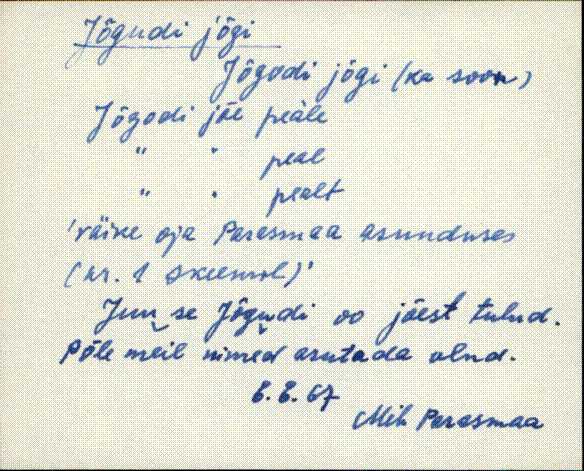 Jõgudi jõgi
Jõgodi jõgi (ka soon)
Jõgodi jõe peale
" " peal
" " pealt
'väike oja Parasmaa asunduses
(nr. 1 skeemil)'
Juu se Jõgudi oo jõest tulnd.
Põle meil nimed arutada olnd.
8.8.67
Mih Parasmaa